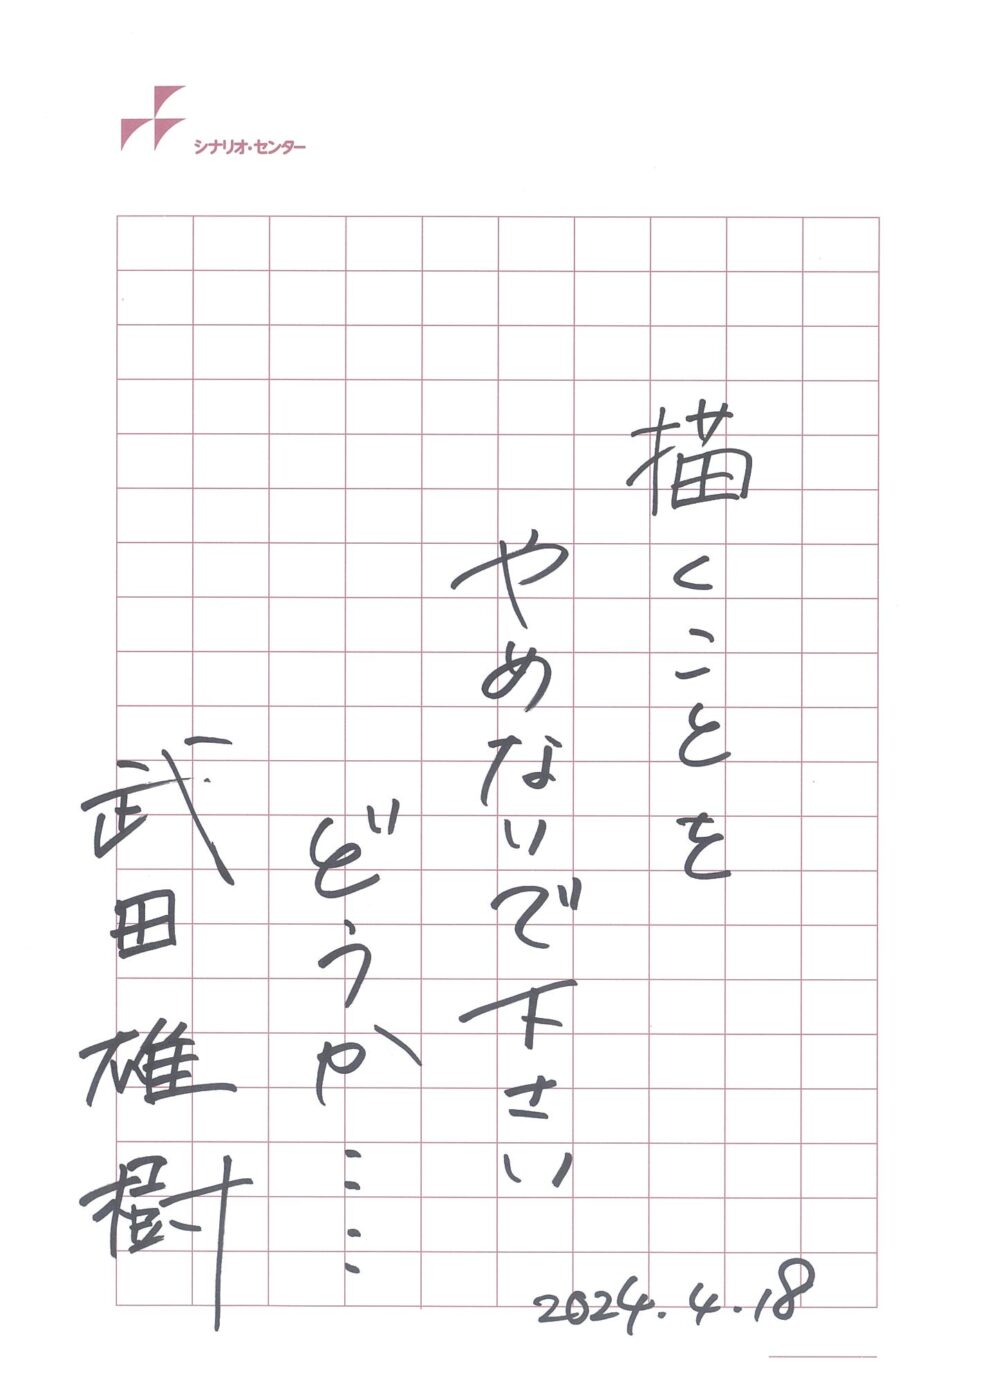 シナリオ・センター
描くことを
やめないで下さい
どうか……
武田雄樹
2024.4.18